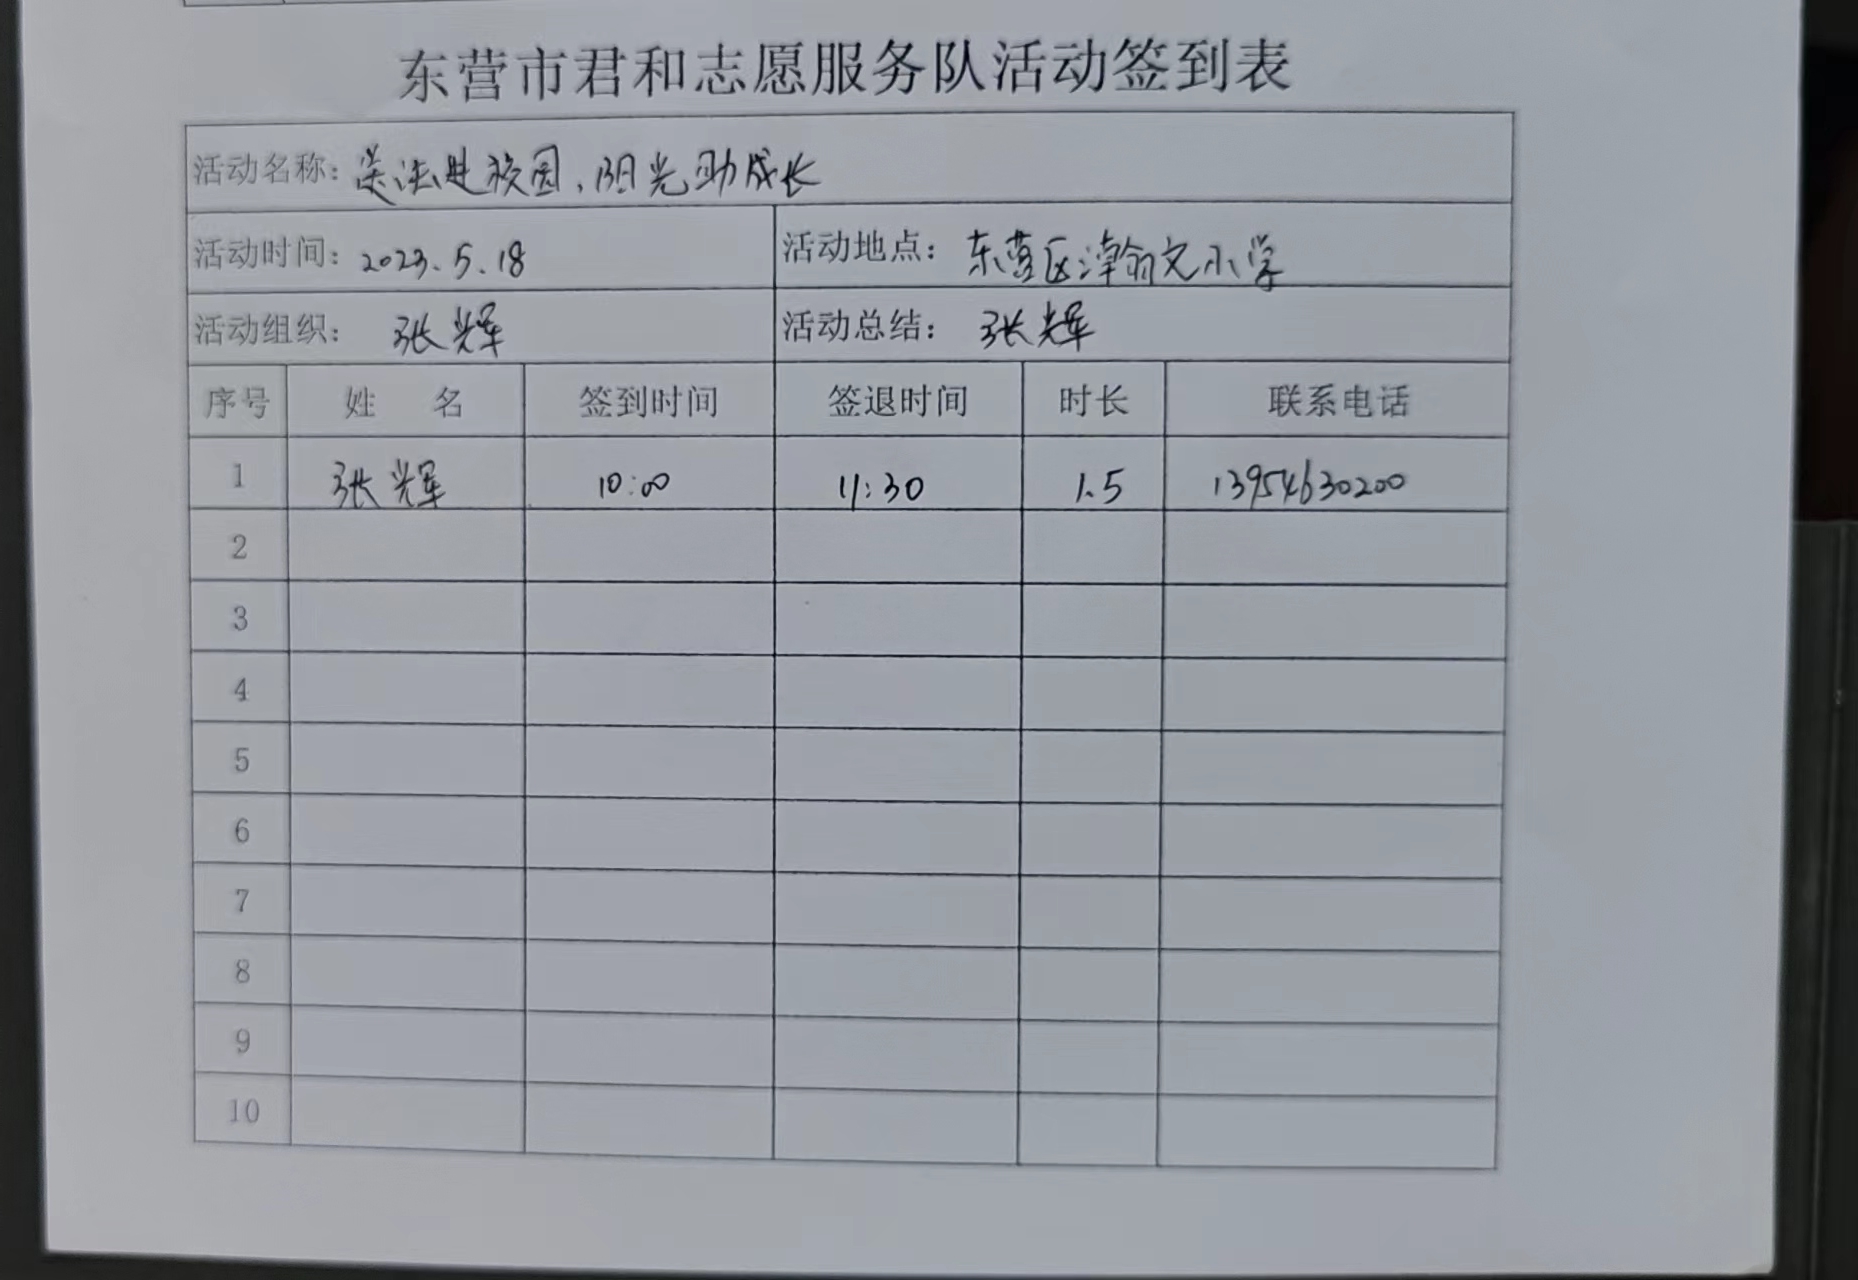 东营市君和志愿服务队活动签到表
活动名称：送法进校园、阳光助成长
活动时间：2023.5.18 活动地点：东营区瀚文小学
活动组织：张辉 活动总结：张辉
序号 姓 名 签到时间 签退时间 时长 联系电话
1 张辉 10:00 11:30 1.5 13954630200
2
3
4
5
6
7
8
9
10